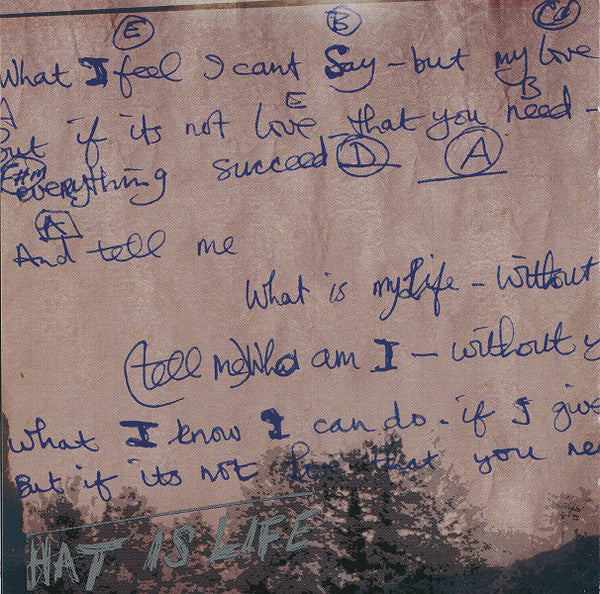 E B
What I feel I cant Say - but my love
A E B
but if its not love - that you need -
F#m everything succeed D A
A
And tell me
What is my Life - Without
(tell me) Who am I - without y
What I know I can do - if I give
But if its not love that you nee
HAT IS LIFE